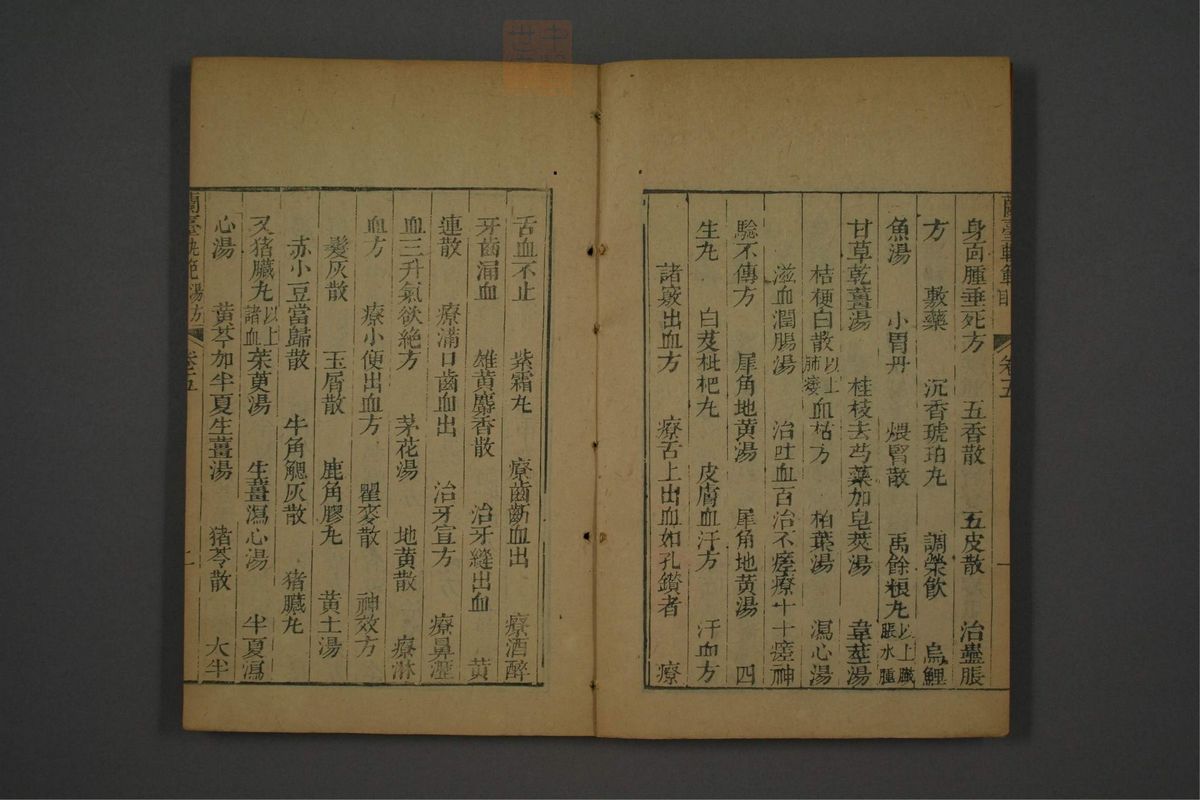 蘭臺軌範目 卷五 一
身面腫垂死方 五香散 五皮散 治蠱脹
方 敷藥 沉香琥珀丸 調榮飲 烏鯉
魚湯 小胃丹 煨腎散 禹餘粮丸 以上臌脹水腫
甘草乾薑湯 桂枝去芍藥加皂莢湯 葦莖湯
桔梗白散 以上肺痿 血枯方 柏葉湯 瀉心湯
滋血潤腸湯 治吐血百治不瘥療十十瘥神
驗不傳方 犀角地黄湯 犀角地黄湯 四
生丸 白芨枇杷丸 皮膚血汗方 汗血方
諸竅出血方 療舌上出血如孔鑽者 療
舌血不止 紫霜丸 療齒齗血出 療酒醉
牙齒漏血 雄黄麝香散 治牙縫出血 黄
連散 療滿口齒血出 治牙宣方 療鼻衄
血三升氣欲絶方 茅花湯 地黄散 療淋
血方 療小便出血方 瞿麥散 神效方
髮灰散 玉屑散 鹿角膠丸 黄土湯
赤小豆當歸散 牛角䚡灰散 猪臟丸
又猪臟丸 以上諸血 茱萸湯 生薑瀉心湯 半夏瀉
心湯 黄芩加半夏生薑湯 猪苓散 大半
蘭臺軌範湯方 卷五 二